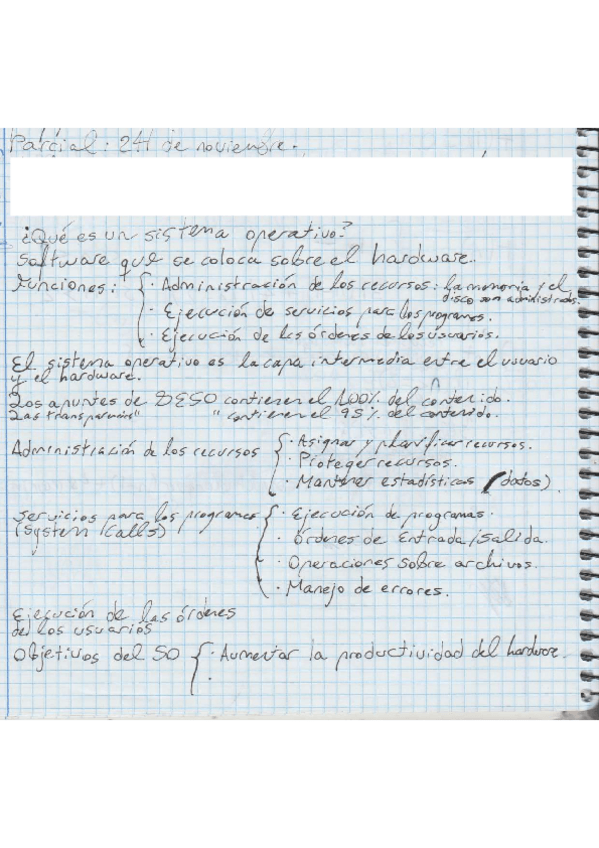 Parcial: 24 de noviembre.
¿Qué es un sistema operativo?
Software que se coloca sobre el hardware.
Funciones: { · Administración de los recursos: la memoria y el
disco son administrados.
· Ejecución de servicios para los programas.
· Ejecución de las órdenes de los usuarios.
El sistema operativo es la capa intermedia entre el usuario
y el hardware.
Los apuntes de DESO contienen el 100% del contenido.
Las transparencias " " contienen el 95% del contenido.
Administración de los recursos { · Asignar y planificar recursos.
· Proteger recursos.
· Mantener estadísticas (datos)
Servicios para los programas { · Ejecución de programas.
(System Calls)
· Órdenes de Entrada/Salida.
· Operaciones sobre archivos.
· Manejo de errores.
Ejecución de las órdenes
de los usuarios
Objetivos del SO { · Aumentar la productividad del hardware.
·